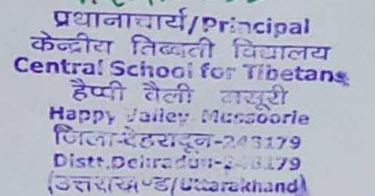 प्रधानाचार्य/Principal
केन्द्रीय तिब्बती विद्यालय
Central School for Tibetans
हैप्पी वैली मसूरी
Happy Valley Mussoorie
जिला-देहरादून-248179
Distt.Dehradun-248179
(उत्तराखण्ड/Uttarakhand)